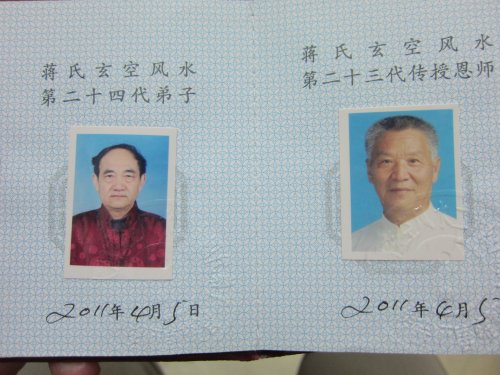 蒋氏玄空风水
第二十四代弟子
2011年4月5日
蒋氏玄空风水
第二十三代传授恩师
2011年4月5